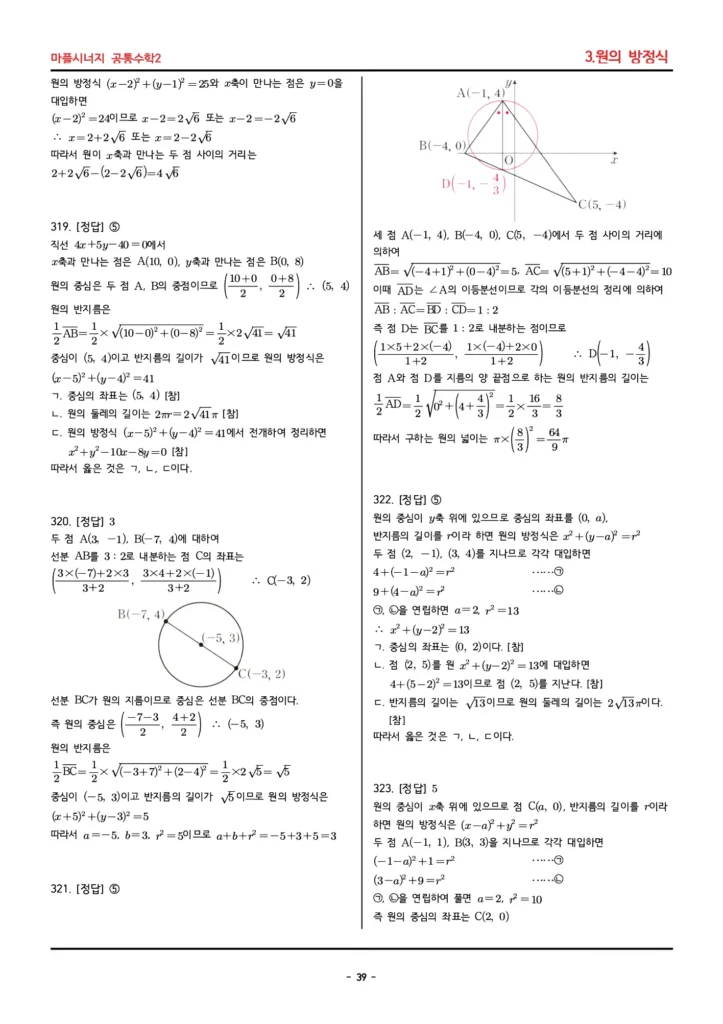 마플시너지 공통수학2
3.원의 방정식
원의 방정식 (x-2)²+(y-1)²=25와 x축이 만나는 점은 y=0을
대입하면
(x-2)²=24이므로 x-2=2√6 또는 x-2=-2√6
∴ x=2+2√6 또는 x=2-2√6
따라서 원이 x축과 만나는 두 점 사이의 거리는
2+2√6-(2-2√6)=4√6
319. [정답] ⑤
직선 4x+5y-40=0에서
x축과 만나는 점은 A(10, 0), y축과 만나는 점은 B(0, 8)
원의 중심은 두 점 A, B의 중점이므로 ((10+0)/2, (0+8)/2) ∴ (5, 4)
원의 반지름은
1/2 AB=1/2×√((10-0)²+(0-8)²)=1/2×2√41=√41
중심이 (5, 4)이고 반지름의 길이가 √41이므로 원의 방정식은
(x-5)²+(y-4)²=41
ㄱ. 중심의 좌표는 (5, 4) [참]
ㄴ. 원의 둘레의 길이는 2πr=2√41π [참]
ㄷ. 원의 방정식 (x-5)²+(y-4)²=41에서 전개하여 정리하면
x²+y²-10x-8y=0 [참]
따라서 옳은 것은 ㄱ, ㄴ, ㄷ이다.
320. [정답] 3
두 점 A(3, -1), B(-7, 4)에 대하여
선분 AB를 3:2로 내분하는 점 C의 좌표는
((3×(-7)+2×3)/(3+2), (3×4+2×(-1))/(3+2)) ∴ C(-3, 2)
B(-7, 4)
(-5, 3)
C(-3, 2)
선분 BC가 원의 지름이므로 중심은 선분 BC의 중점이다.
즉 원의 중심은 ((-7-3)/2, (4+2)/2) ∴ (-5, 3)
원의 반지름은
1/2 BC=1/2×√((-3+7)²+(2-4)²)=1/2×2√5=√5
중심이 (-5, 3)이고 반지름의 길이가 √5이므로 원의 방정식은
(x+5)²+(y-3)²=5
따라서 a=-5, b=3, r²=5이므로 a+b+r²=-5+3+5=3
321. [정답] ⑤
A(-1, 4)
y
B(-4, 0)
O
x
D(-1, -4/3)
C(5, -4)
세 점 A(-1, 4), B(-4, 0), C(5, -4)에서 두 점 사이의 거리에
의하여
AB=√((-4+1)²+(0-4)²)=5, AC=√((5+1)²+(-4-4)²)=10
이때 AD는 ∠A의 이등분선이므로 각의 이등분선의 정리에 의하여
AB:AC=BD:CD=1:2
즉 점 D는 BC를 1:2로 내분하는 점이므로
((1×5+2×(-4))/(1+2), (1×(-4)+2×0)/(1+2)) ∴ D(-1, -4/3)
점 A와 점 D를 지름의 양 끝점으로 하는 원의 반지름의 길이는
1/2 AD=1/2 √(0²+(4+4/3)²)=1/2×16/3=8/3
따라서 구하는 원의 넓이는 π×(8/3)²=64/9 π
322. [정답] ⑤
원의 중심이 y축 위에 있으므로 중심의 좌표를 (0, a),
반지름의 길이를 r이라 하면 원의 방정식은 x²+(y-a)²=r²
두 점 (2, -1), (3, 4)를 지나므로 각각 대입하면
4+(-1-a)²=r² ……㉠
9+(4-a)²=r² ……㉡
㉠, ㉡을 연립하면 a=2, r²=13
∴ x²+(y-2)²=13
ㄱ. 중심의 좌표는 (0, 2)이다. [참]
ㄴ. 점 (2, 5)를 원 x²+(y-2)²=13에 대입하면
4+(5-2)²=13이므로 점 (2, 5)를 지난다. [참]
ㄷ. 반지름의 길이는 √13이므로 원의 둘레의 길이는 2√13π이다.
[참]
따라서 옳은 것은 ㄱ, ㄴ, ㄷ이다.
323. [정답] 5
원의 중심이 x축 위에 있으므로 점 C(a, 0), 반지름의 길이를 r이라
하면 원의 방정식은 (x-a)²+y²=r²
두 점 A(-1, 1), B(3, 3)을 지나므로 각각 대입하면
(-1-a)²+1=r² ……㉠
(3-a)²+9=r² ……㉡
㉠, ㉡을 연립하여 풀면 a=2, r²=10
즉 원의 중심의 좌표는 C(2, 0)
- 39 -